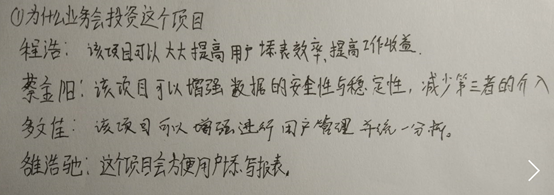 ①为什么业务会投资这个项目
程浩：该项目可以大大提高用户填表效率，提高工作收益.
蔡金阳：该项目可以增强数据的安全性与稳定性，减少第三者的介入
文佳：该项目可以增强进行用户管理并统一分析。
浩驰：这个项目会方便用户填写报表。